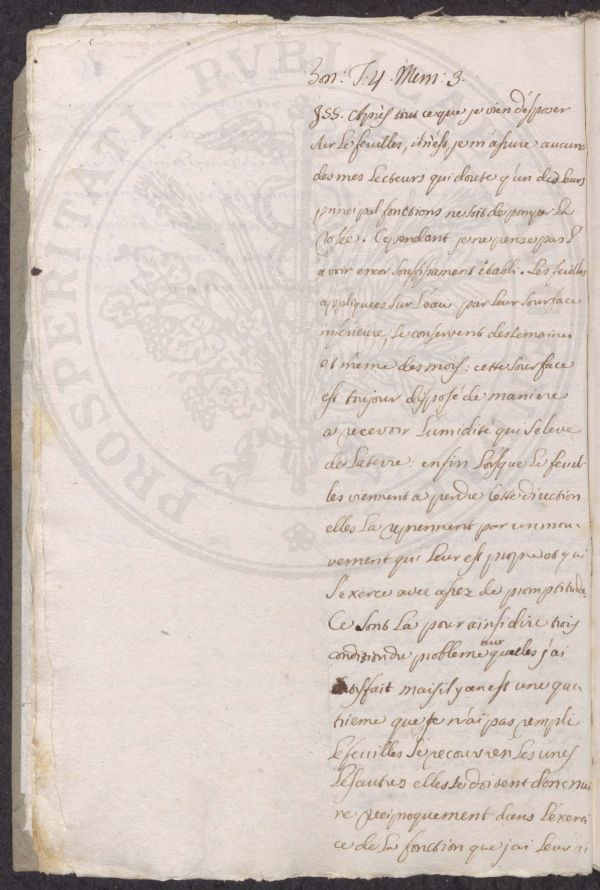 Bon: T: 4. Mem: 3.
§SS. Après tout ce que je vien d'esposer
sur le feuilles, il n'est, je m'asure aucuns
des mes Lecteurs qui doute q'un des Leurs
principal fonctions ne soit de pomper La
rosee. Cependant je ne pense pas l'
avoir encor soufisament établi. Les feuilles
appliquees sur L'eau par Leur sourface
inferieure, se conservent des semaines
et même des mois: cette sourface
est toujour disposé de maniere
a recevoir L'umidité qui s'eleve
de La terre: enfin Lorsque Le feuil-
les viennent a perdre Cette direction
elles La reprennent par un mou-
vement qui Leur est propre et qui
s'exerce avec asez de promptitude.
Ce sont La pour ainsi dire trois
condizion du probleme aux quelles j'ai
satisfait mais il y an est une qua
trieme que je n'ai pas rempli
Le feuilles se recouvren Les unes
Les autres elles se doivent donc nui
re reciproquement dans L'exerci
ce de La fonction que j'ai Leur ai
PROSPERITATI PUBLICAE